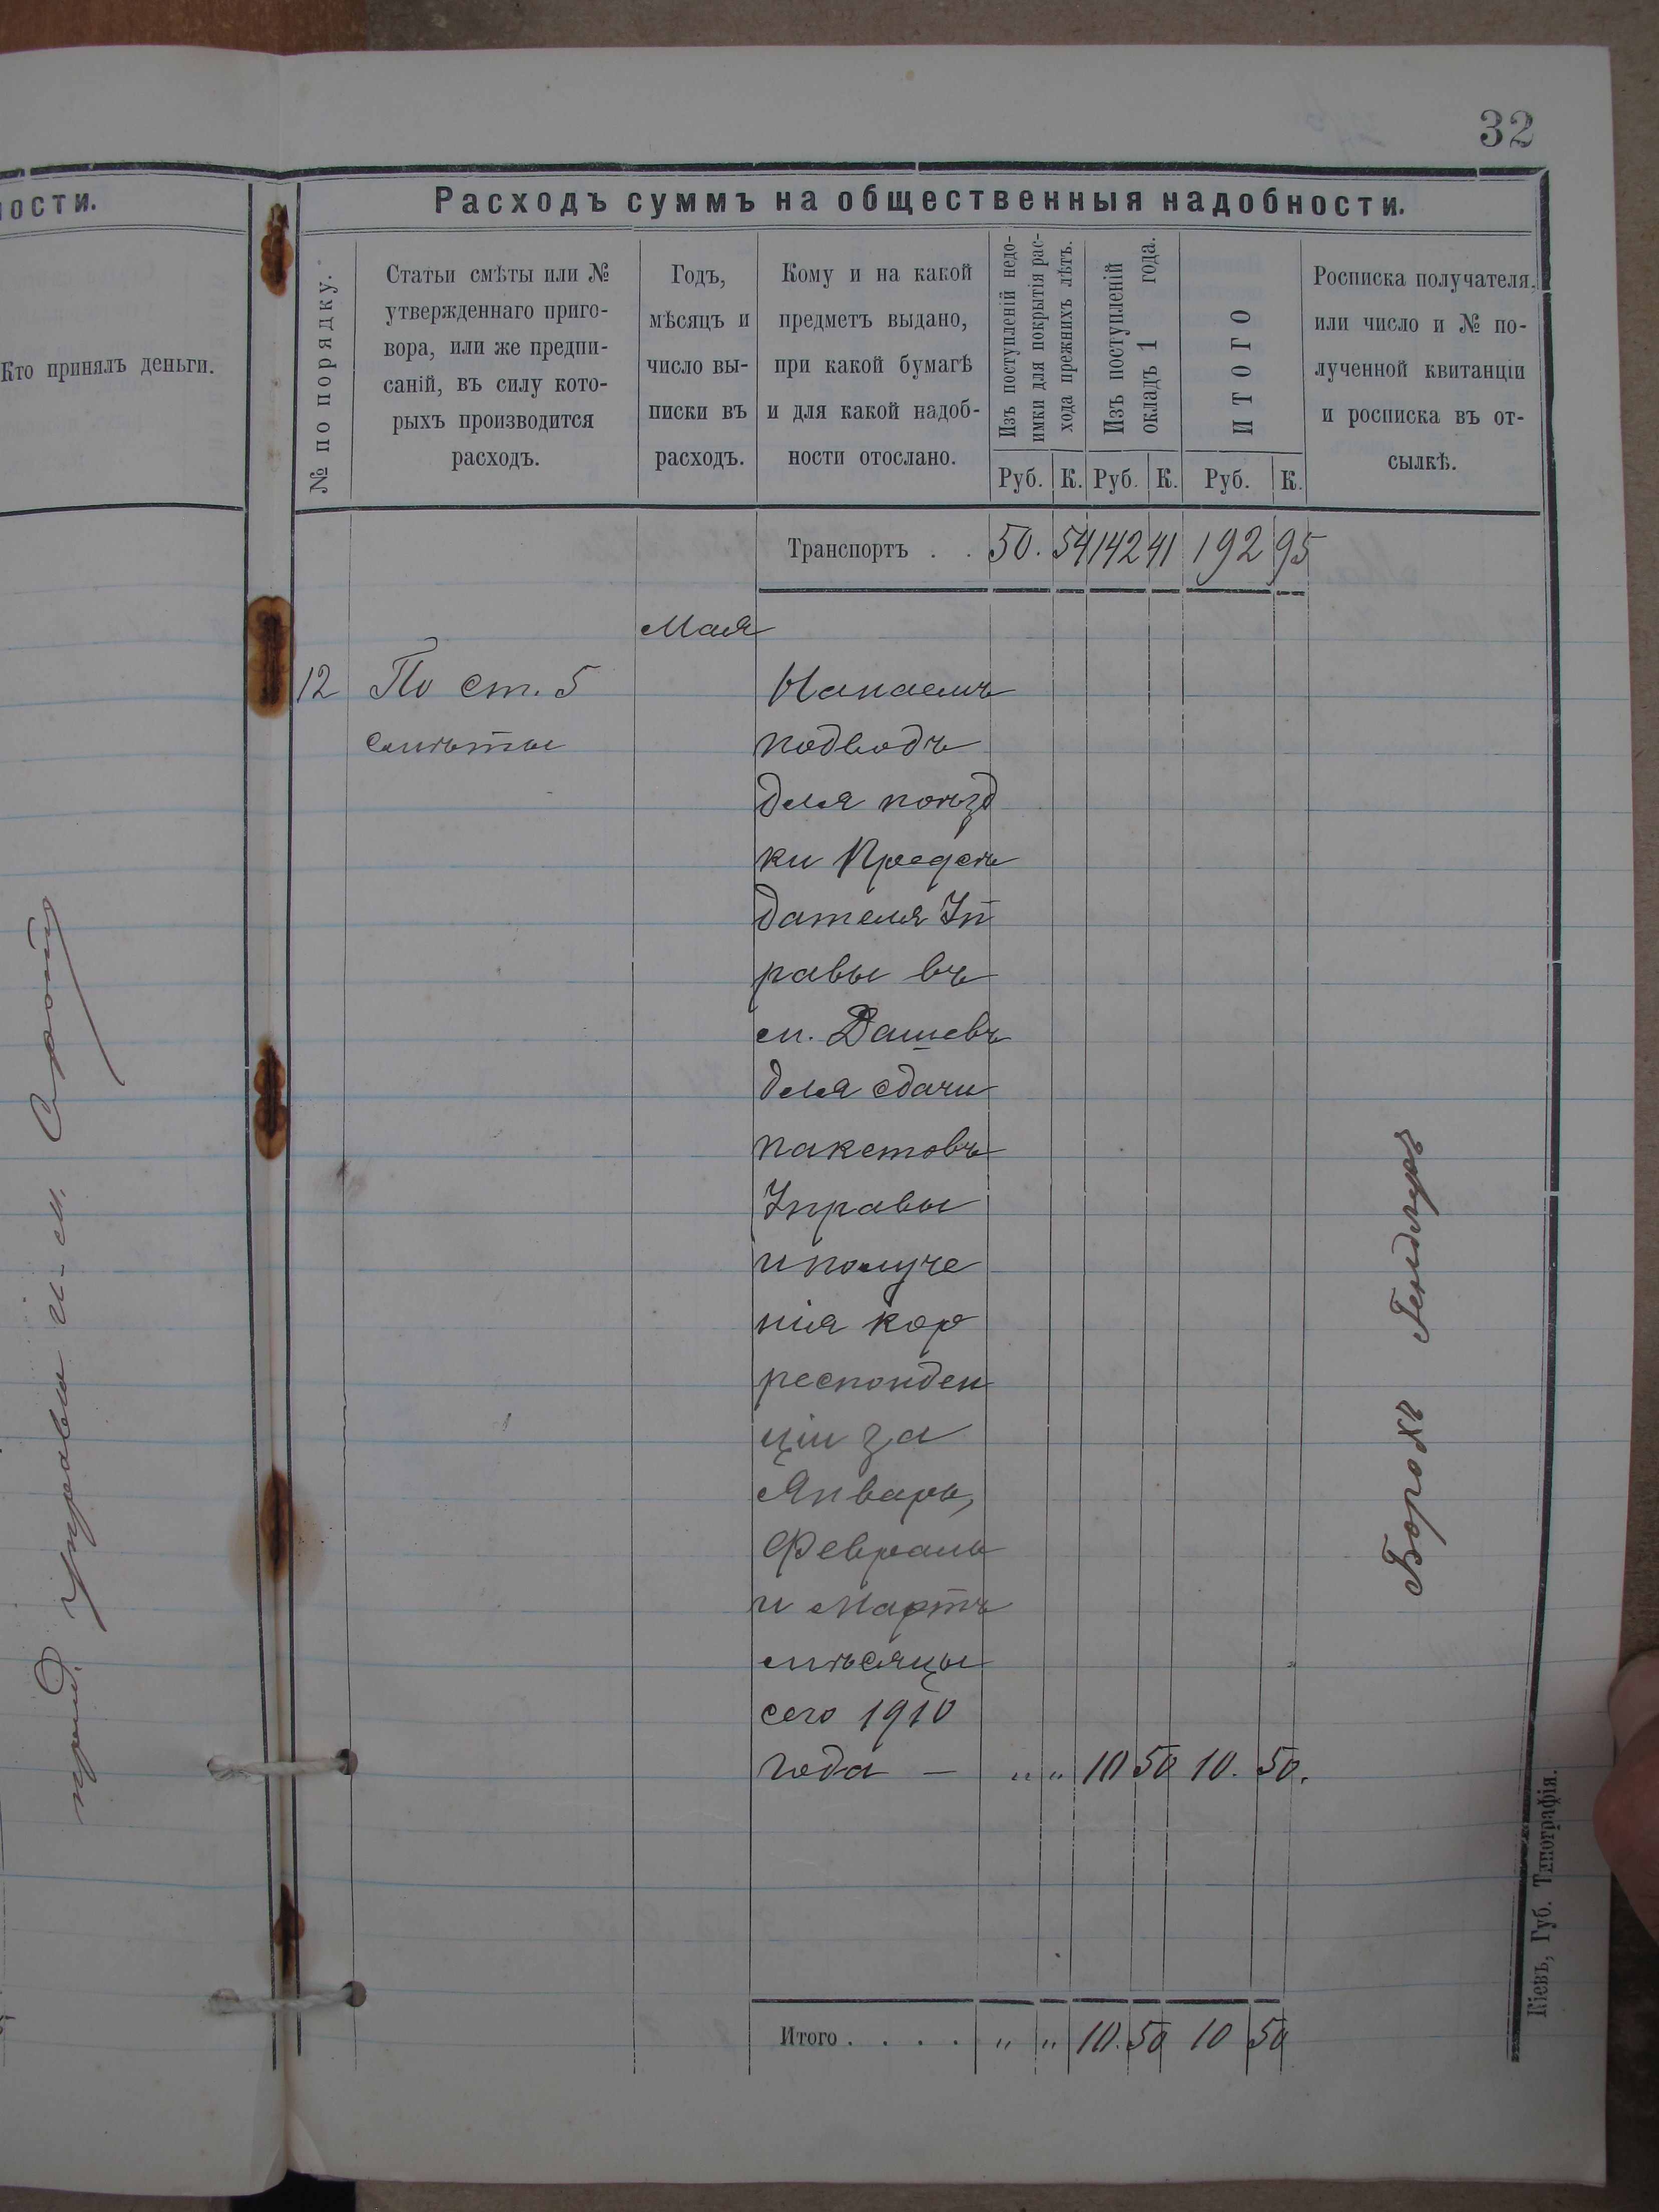 32
ности.
Кто принялъ деньги.
Расходъ суммъ на общественныя надобности.
№ по порядку.
Статьи смѣты или №
утвержденнаго приго-
вора, или же предпи-
саній, въ силу кото-
рыхъ производится
расходъ.
Годъ,
мѣсяцъ и
число вы-
писки въ
расходъ.
Кому и на какой
предметъ выдано,
при какой бумагѣ
и для какой надоб-
ности отослано.
Изъ поступленій недо-
имки для покрытія рас-
хода прежнихъ лѣтъ.
Изъ поступленій
окладъ 1 года.
ИТОГО
Руб. К. Руб. К. Руб. К.
Росписка получателя,
или число и № по-
лученной квитанціи
и росписка въ от-
сылкѣ.
Транспортъ . . 50. 54 142 41 192 95
Мая
12 По ст. 5
смѣты
подводъ
для поѣзд
ки Предсѣ
дателя Уп
равы въ
м. Дашевъ
для сдачи
пакетовъ
Управы
и получе
нія кор
респонден
ціи за
Январь,
Февраль
и Мартъ
мѣсяцы
сего 1910
года — „ „ 10 50 10. 50.
Борохъ
Итого . . . . „ „ 10. 50 10 50
Кіевъ, Губ. Типографія.
управы